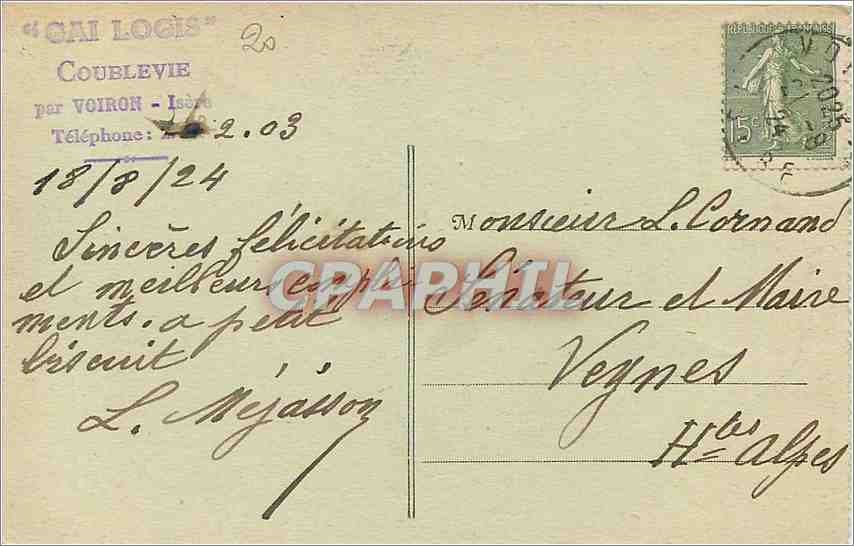 "GAI LOGIS"
COUBLEVIE
par VOIRON - Isère
Téléphone: 2.03
20
18/8/24
Sincères félicitations
et meilleurs compli
ments. a petit
biscuit
L. Méjasson
Monsieur L. Cornand
Sénateur et Maire
Veynes
Htes Alpes
15c
CPAPHIL